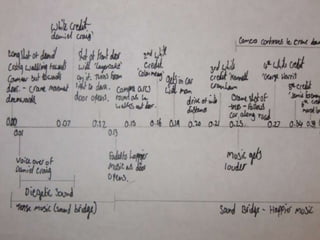 White Credit
daniel Craig
Long shot of daniel
Craig walking towards
Camera but towards
door. - Crane movement
downwards
Shot of front door
with 'Layercake'
on it. turns from
light to dark.
door opens.
2nd white
credit
'colm meaney'
Camera
round as he
walks out door
gets in car
with man
drive off into
distance
3rd white
credit 'Kenneth
Cranham
Crane shot of
tree - follows
car along road
4th white credit
'George Harris
5th white
credit
Camera continues to crane down
0.00
0.01
0.07
0.12
0.13
0.15
0.16
0.19
0.20
0.21
0.25
0.27
0.34
Voice over of
Daniel Craig
Diegetic Sound
Tense music (sound bridge)
Fades to happier
Music as door
Opens.
Music gets
louder
Sound Bridge - Happier Music